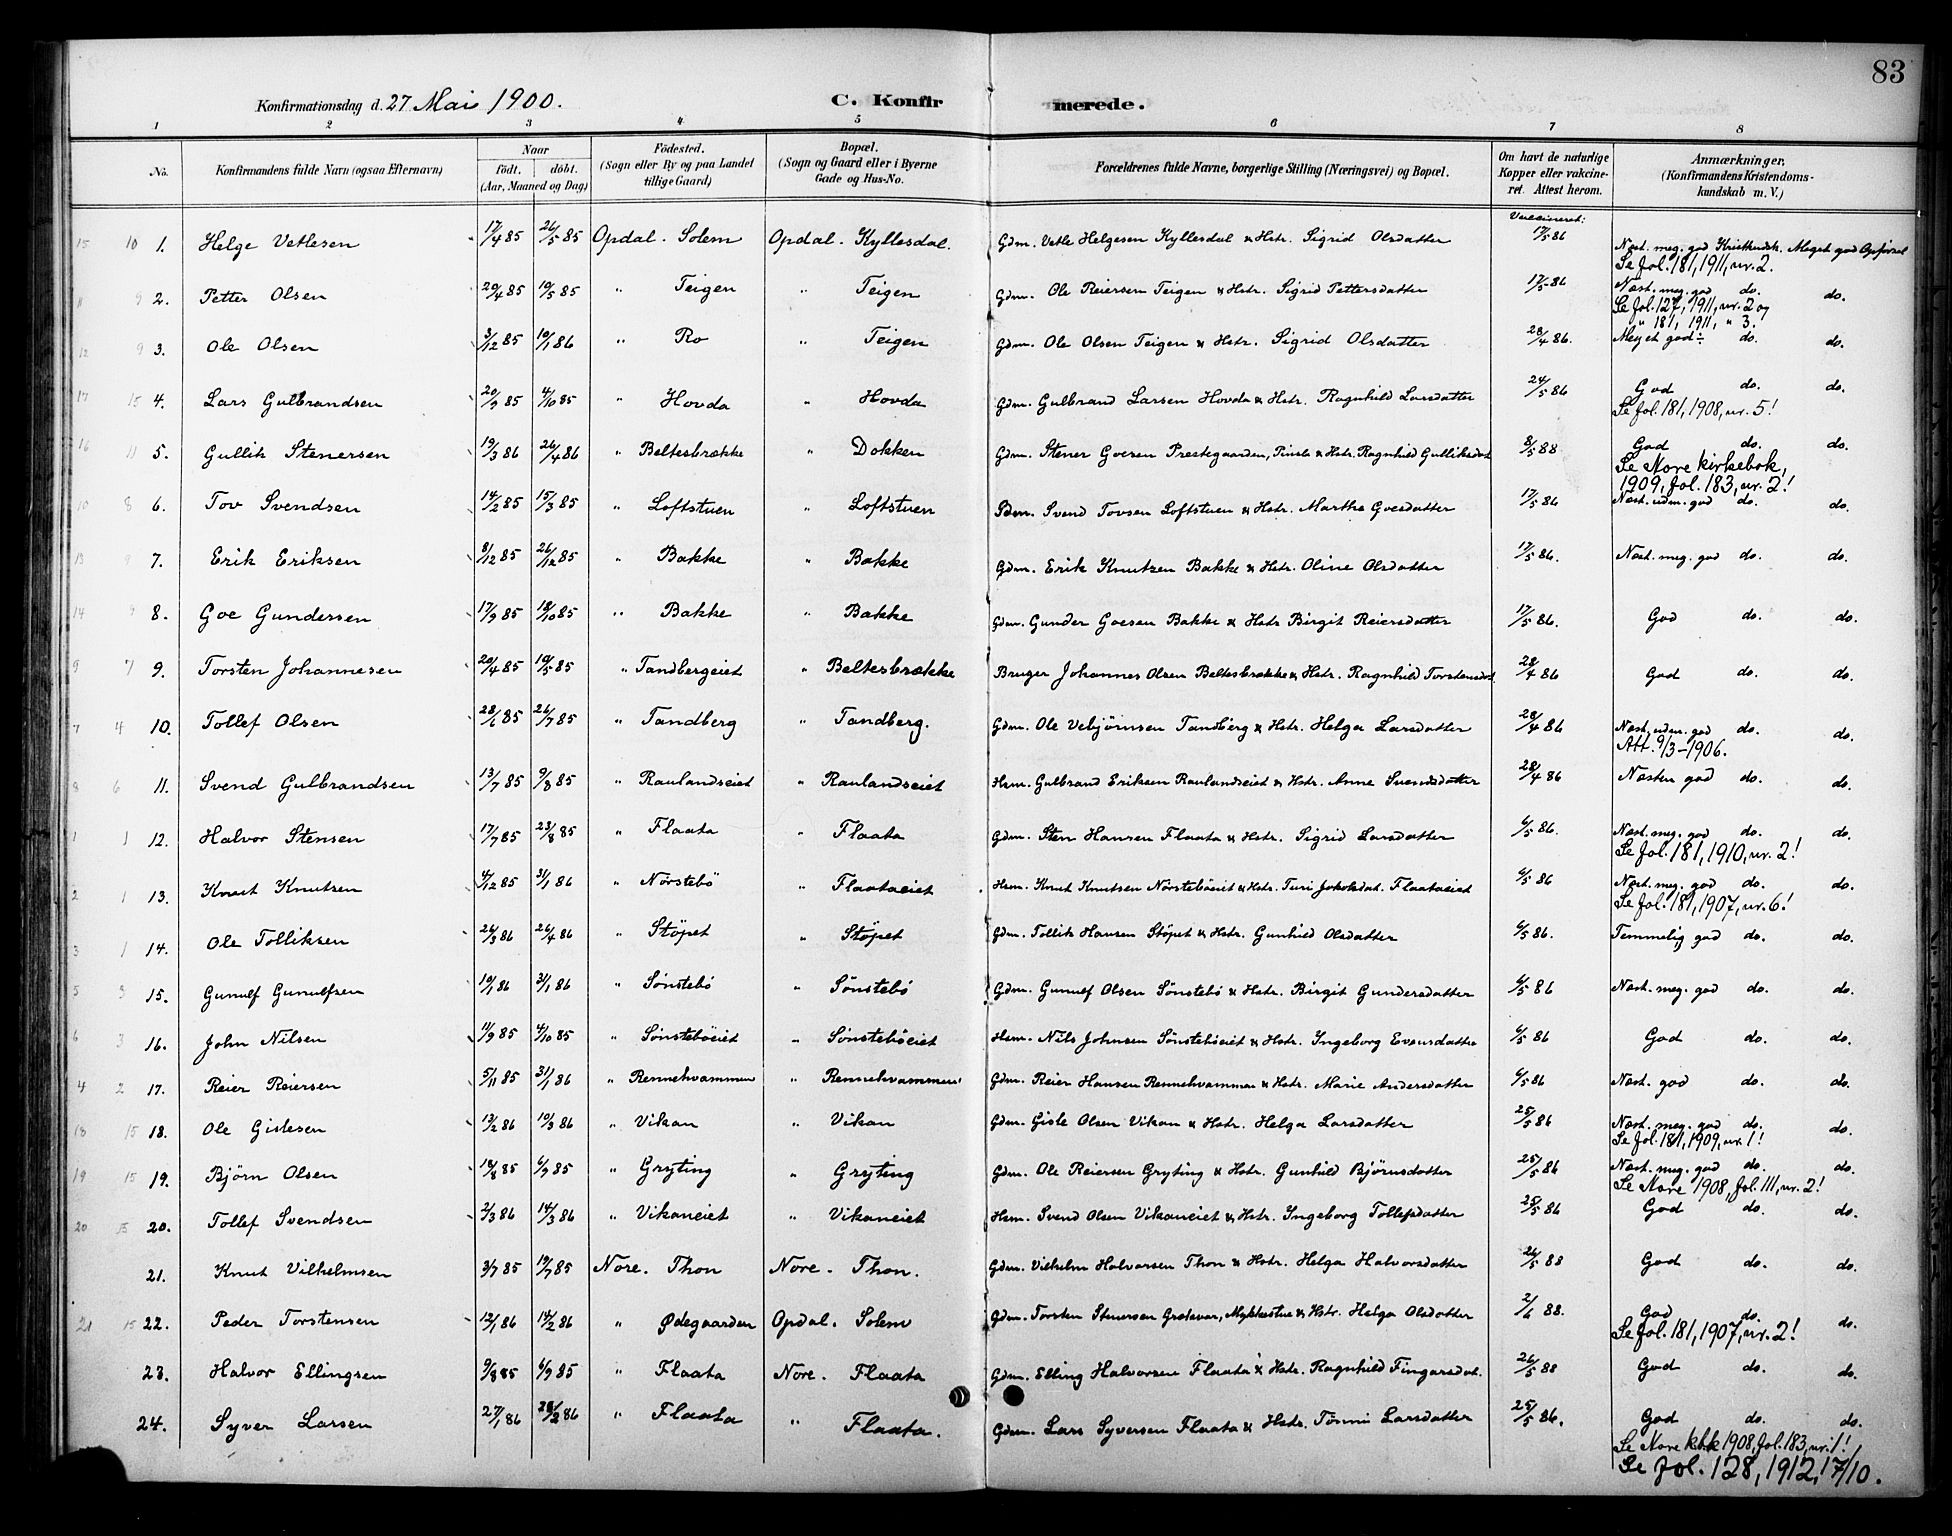 83
Konfirmationsdag d. 27 Mai 1900. C. Konfirmerede.
1 2 3 4 5 6 7 8
No. Konfirmandens fulde Navn (ogsaa Efternavn) Naar født. døbt. (Aar, Maaned og Dag) Fødested. (Sogn eller By og paa Landet tillige Gaard) Bopæl. (Sogn og Gaard eller i Byerne Gade og Hus-No. Forældrenes fulde Navne, borgerlige Stilling (Næringsvei) og Bopæl. Om havt de naturlige Kopper eller vakcineret. Attest herom. Anmærkninger. (Konfirmandens Kristendomskundskab m. V.)
15 10 1. Helge Vetlesen 17/4 85 26/5 85 Opdal. Solem Opdal. Kyllesdal. Gdm. Vetle Helgesen Kyllesdal & Hstr. Sigrid Olsdatter Vaccineret: 17/5 86 Næst. meg. god Kristkundsk. Meget god Opførsel
Se fol. 181, 1911, nr. 2.
11 9 2. Petter Olsen 20/4 85 10/5 85 " Teigen " Teigen Gdm. Ole Reiersen Teigen & Hstr. Sigrid Pettersdatter 17/5 86 Næst. meg. god do. do.
Se fol. 127, 1911, nr. 2 og
" 181, 1911, " 3.
12 9 3. Ole Olsen 3/12 85 10/1 86 " Ro " Teigen Gdm. Ole Olsen Teigen & Hstr. Sigrid Olsdatter 28/4 86. Meget god ÷ do. do.
17 15 4. Lars Gulbrandsen 20/9 85 4/10 85 " Hovda " Hovda Gdm. Gulbrand Larsen Hovda & Hstr. Ragnhild Larsdatter 24/5 86 God do. do.
Se fol. 181, 1908, nr. 5!
16 11 5. Gullik Stenersen 19/3 86 26/4 86 " Beltesbrække " Dokken Gdm. Stener Goesen Prestegaarden, Tinsle & Hstr. Ragnhild Gulliksdat 8/5 88 God do. do.
Se Nore kirkebok,
1909, fol. 183, nr. 2!
10 8 6. Tov Svendsen 14/2 85 15/3 85 " Loftstuen " Loftstuen Gdm. Svend Tovsen Loftstuen & Hstr. Marthe Goesdatter 17/5 86 Næst. uden. god do. do.
13 9 7. Erik Eriksen 8/12 85 26/12 85 " Bakke " Bakke Gdm. Erik Knutsen Bakke & Hstr. Oline Olsdatter 17/5 86. Næst. meg. god do. do.
14 9 8. Goe Gundersen 17/9 85 18/10 85 " Bakke " Bakke Gdm. Gunder Goesen Bakke & Hstr Birgit Reiersdatter 17/5 86. God do. do.
9 7 9. Torsten Johannesen 20/4 85 10/5 85 " Tandbergeiet " Beltesbrække Bruger Johannes Olsen Beltesbrække & Hstr. Ragnhild Torstensdat. 28/4 86 God do. do.
7 4 10. Tollef Olsen 28/6 85 26/7 85 " Tandberg " Tandberg. Gdm. Ole Vebjørnsen Tandberg & Hstr. Helga Larsdatter 28/4 86 Næst. uden. god do. do.
Att. 9/3-1906.
8 6 11. Svend Gulbrandsen 13/7 85 9/8 85 " Raulandseiet " Raulandseiet Hsm. Gulbrand Eriksen Raulandseiet & Hstr. Anne Svensdatter 28/4 86 Næsten god do. do.
1 1 12. Halvor Stensen 17/7 85 23/8 85 " Flaata " Flaata Gdm. Sten Hansen Flaata & Hstr. Sigrid Larsdatter 6/5 86. Næst. meg. god do. do.
Se fol. 181, 1910, nr. 2!
2 1 13. Knut Knutsen 4/12 85 31/1 86 " Nørstebø " Flaataeiet Hsm. Knut Knutsen Nørstebøeiet & Hstr. Turi Jakobsdat. Flaataeiet 6/5 86 Næst. meg. god do. do.
Se fol. 181, 1907, nr. 6!
3 1 14. Ole Tolliksen 26/3 86 26/4 86 " Støpet " Støpet Gdm. Tollik Hansen Støpet & Hstr. Gunhild Olsdatter 6/5 86. Temmelig god do. do.
5 3 15. Gunulf Gunulfsen 10/1 86 31/1 86 " Sønstebø " Sønstebø Gdm. Gunulf Olsen Sønstebø & Hstr. Birgit Gundersdatter 6/5 86 Næst. meg. god do. do.
6 3 16. John Nilsen 11/9 85 4/10 85 " Sønstebøeiet " Sønstebøeiet Hsm. Nils Johnsen Sønstebøeiet & Hstr. Ingeborg Evensdatter 6/5 86 God do. do.
4 2 17. Reier Reiersen 5/11 85 31/1 86 " Rennehvammen " Rennehvammen Gdm. Reier Hansen Rennehvammen & Hstr. Marie Andersdatter 6/5 86 Næst. god do. do.
18 15 18. Ole Gislesen 13/2 86 10/3 86 " Vikan " Vikan Gdm. Gisle Olsen Vikan & Hstr. Helga Larsdatter 25/5 86 Næst. meg. god do. do.
Se fol. 181, 1909, nr. 1!
19 15 19. Bjørn Olsen 18/8 85 6/9 85 " Gryting " Gryting Gdm. Ole Reiersen Gryting & Hstr. Gunhild Bjørnsdatter 25/5 86 Næst. meg. god do. do.
Se Nore 1908, fol. 111, nr. 2!
20 15 20. Tollef Svendsen 2/3 86 14/3 86 " Vikaneiet " Vikaneiet Hsm. Svend Olsen Vikaneiet & Hstr. Ingeborg Tollefsdatter 25/5 86 God do. do.
21. Knut Vilhelmsen 3/7 85 19/7 85 Nore. Thon Nore. Thon. Gdm. Vilhelm Halvorsen Thon & Hstr. Helga Halvorsdatter 26/5 88 God do. do.
21 15 22. Peder Torstensen 12/1 86 14/2 86 " Ødegaarden Opdal. Solem Gdm. Torsten Stenersen Grøtevar, Mykkestue & Hstr. Helga Olsdatter 2/6 88. God do. do.
Se fol. 181, 1907, nr. 2!
23. Halvor Ellingsen 9/8 85 6/9 85 " Flaata Nore. Flaata Gdm. Elling Halvorsen Flaata & Hstr. Ragnhild Fingarsdat. 26/5 88 God do. do.
24. Syver Larsen 27/1 86 28/2 86 " Flaata " Flaata. Gdm. Lars Syversen Flaata & Hstr. Tønni Larsdatter 25/5 86. God do. do.
Se Nore kbk 1908, fol. 183, nr. 1!
Se fol. 128, 1912, 17/10.